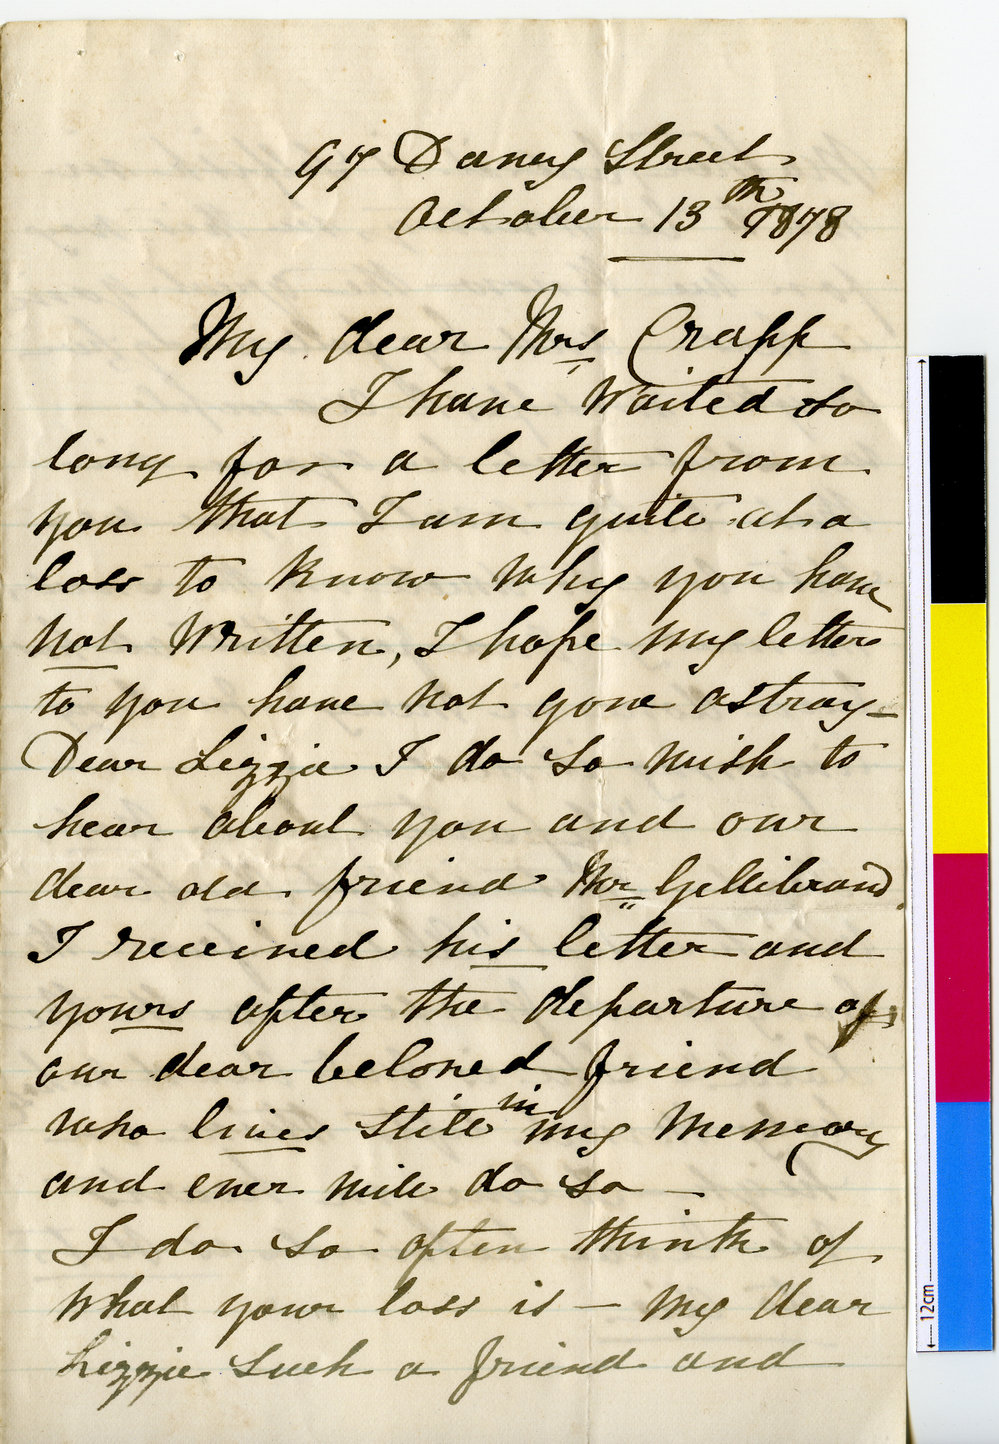 97 Davey Street
October 13th 1878
My dear Mrs Crapp
I have waited so
long for a letter from
you that I am quite at a
loss to know why you have
not written, I hope my letters
to you have not gone astray—
Dear Lizzie I do so wish to
hear about you and our
dear old friend Mr Gellibrand.
I received his letter and
yours after the departure of
our dear beloved friend
who lives still in my memory
and ever will do so —
I do so often think of
what your loss is — my dear
Lizzie such a friend and
12cm